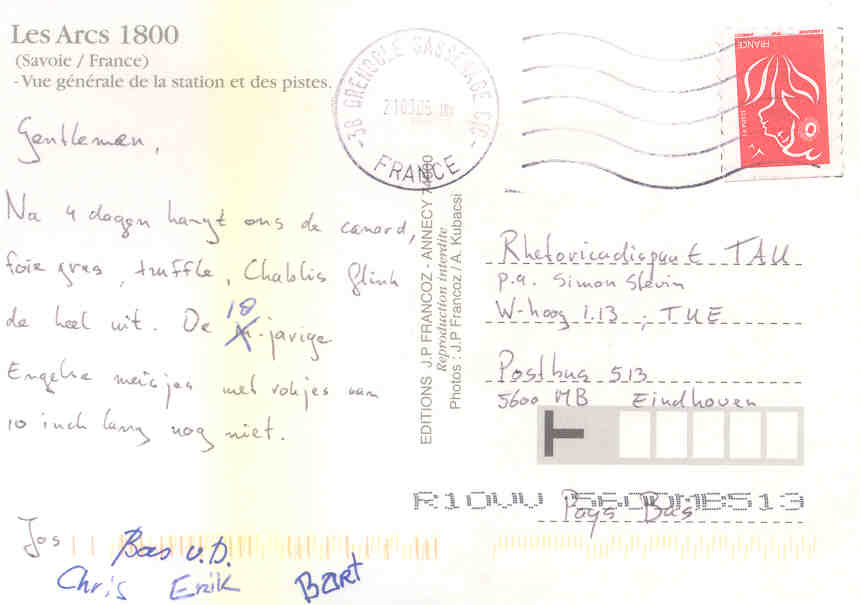 Les Arcs 1800
(Savoie / France)
- Vue générale de la station et des pistes.
Gentleman,
Na 4 dagen hangt ons de canard,
foie gras, truffle, Chablis flink
de keel uit. De 18 -jarige
Engelse meisjes met rokjes van
10 inch lang nog niet.
Jos
Bas v.D.
Chris Erik Bart
38 GRENOBLE SASSENAGE CTC
21 03 05
FRANCE
EDITIONS J.P FRANCOZ - ANNECY 74000
Reproduction interdite
Photos : J.P Francoz / A. Kubacsi
FRANCE
Rhetoricadispuut TAU
p.a. Simon Stevin
W-hoog 1.13 ; TUE
Postbus 513
5600 MB Eindhoven
T
R10UU 5600MB513
Pays Bas